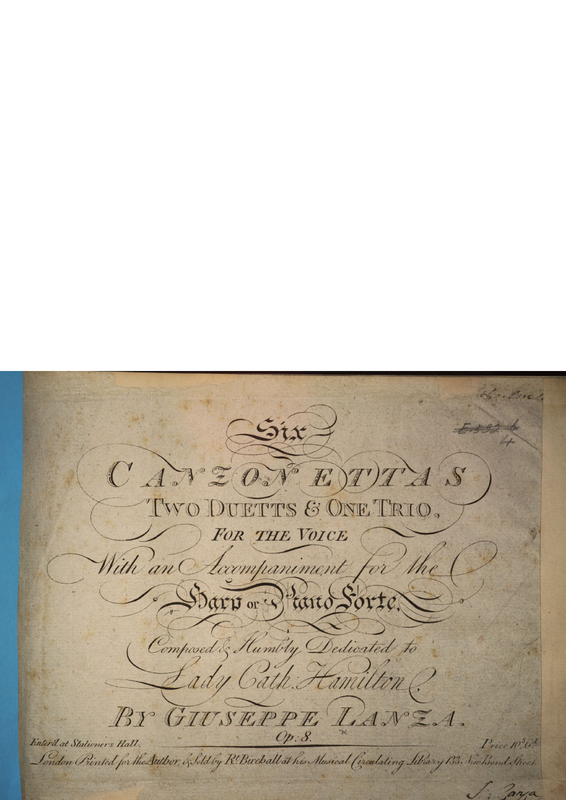 Six
CANZONETTAS
TWO DUETTS & ONE TRIO,
FOR THE VOICE
With an Accompaniment for the
Harp or Piano Forte,
Composed & Humbly Dedicated to
Lady Cath. Hamilton.
BY GIUSEPPE LANZA.
Op: 8.
Enter'd at Stationers Hall. Price 10s. 6d.
London Printed for the Author, & Sold by Rt. Birchall at his Musical Circulating Library 133. New Bond Street